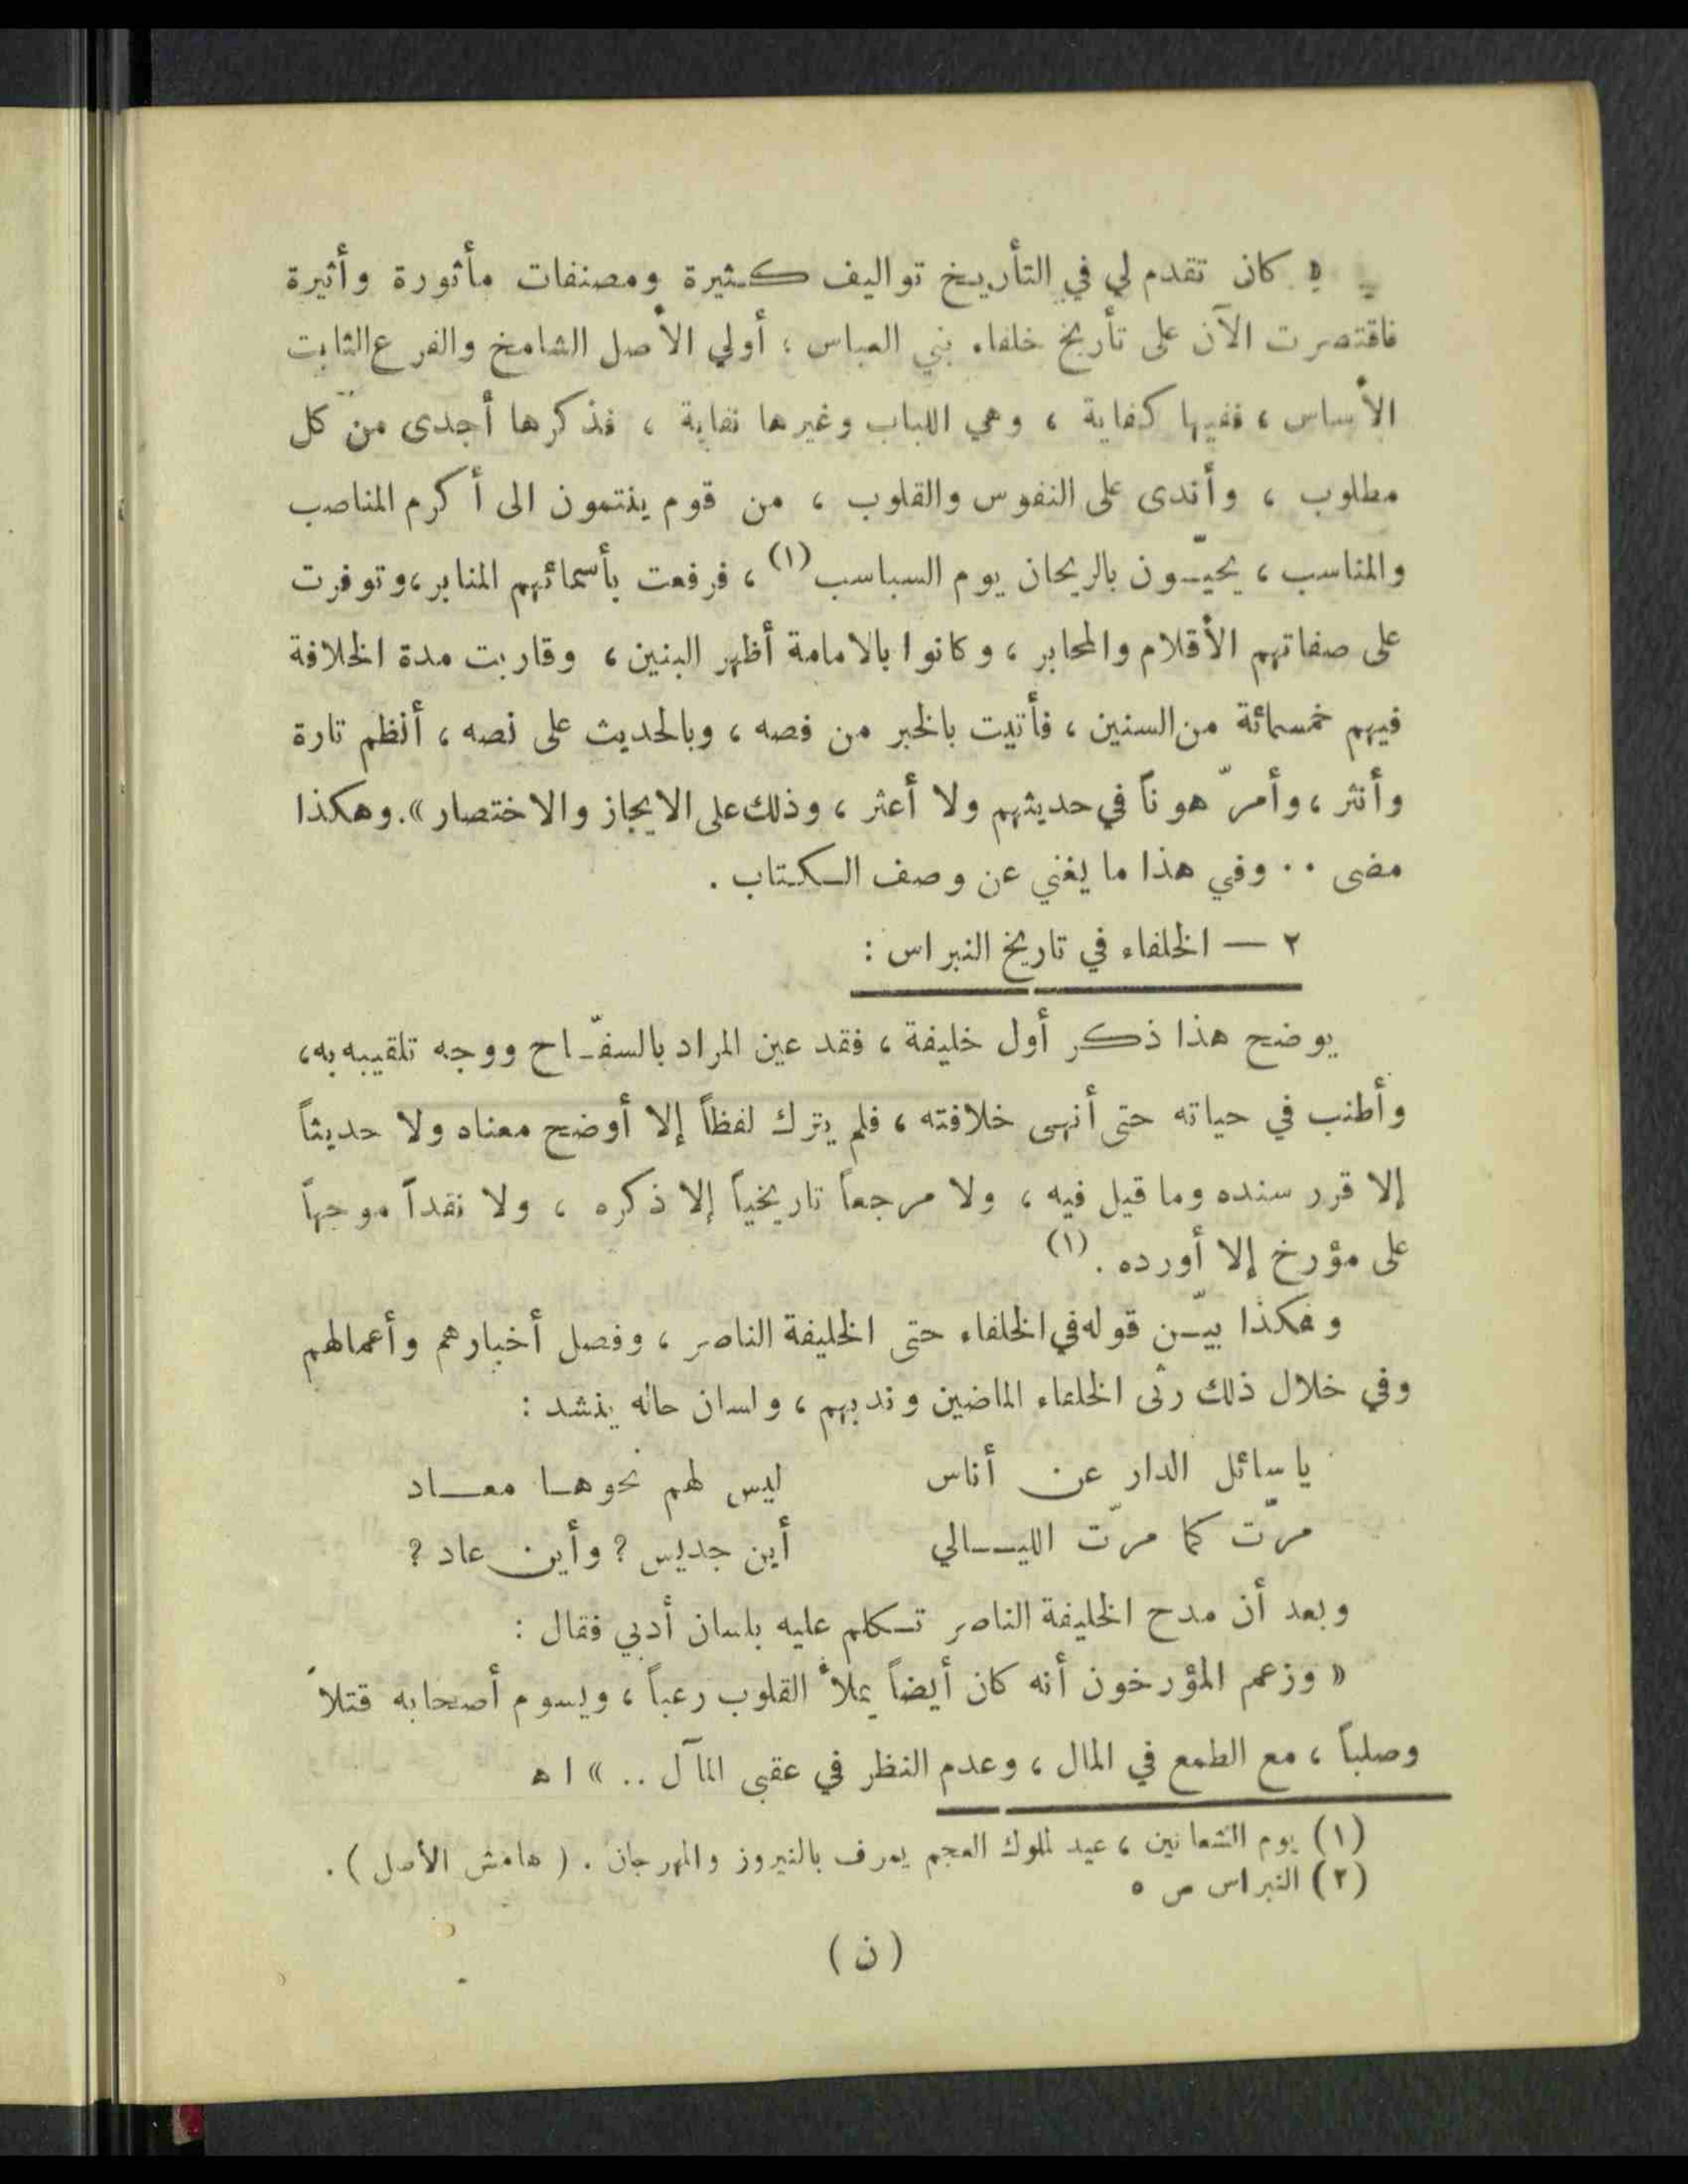 « كان تقدم لي في التأريخ تواليف كثيرة ومصنفات مأثورة وأثيرة
فاقتصرت الآن على تأريخ خلفاء بني العباس ، أولي الأصل الشامخ والفرع الثابت
الأساس ، ففيها كفاية ، وهي اللباب وغيرها نفاية ، فذكرها أجدى من كل
مطلوب ، وأندى على النفوس والقلوب ، من قوم ينتمون الى أكرم المناصب
والمناسب ، يحيّون بالريحان يوم السباسب (١) ، فرفعت بأسمائهم المنابر ، وتوفرت
على صفاتهم الأقلام والمحابر ، وكانوا بالامامة أظهر البنين ، وقاربت مدة الخلافة
فيهم خمسمائة من السنين ، فأتيت بالخبر من فصه ، وبالحديث على نصه ، أنظم تارة
وأنثر ، وأمرّ هوناً في حديثهم ولا أعثر ، وذلك على الايجاز والاختصار » . وهكذا
مضى .. وفي هذا ما يغني عن وصف الكتاب .
٢ — الخلفاء في تاريخ النبراس :
يوضح هذا ذكر أول خليفة ، فقد عين المراد بالسفّاح ووجه تلقيبه به ،
وأطنب في حياته حتى أنهى خلافته ، فلم يترك لفظاً إلا أوضح معناه ولا حديثاً
إلا قرر سنده وما قيل فيه ، ولا مرجعاً تاريخياً إلا ذكره ، ولا نقداً موجهاً
على مؤرخ إلا أورده . (١)
وهكذا بيّن قوله في الخلفاء حتى الخليفة الناصر ، وفصل أخبارهم وأعمالهم
وفي خلال ذلك رثى الخلفاء الماضين وندبهم ، ولسان حاله ينشد :
يا سائل الدار عن أناس ليس لهم نحوها معاد
مرّت كما مرّت الليالي أين جديس ? وأين عاد ?
وبعد أن مدح الخليفة الناصر تكلم عليه بلسان أدبي فقال :
« وزعم المؤرخون أنه كان أيضاً يملأ القلوب رعباً ، ويسوم أصحابه قتلاً
وصلباً ، مع الطمع في المال ، وعدم النظر في عقبى المآل .. » ا ه
(١) يوم الشعانين ، عيد لملوك العجم يعرف بالنيروز والمهرجان . ( هامش الأصل ) .
(٢) النبراس ص ٥
( ن )